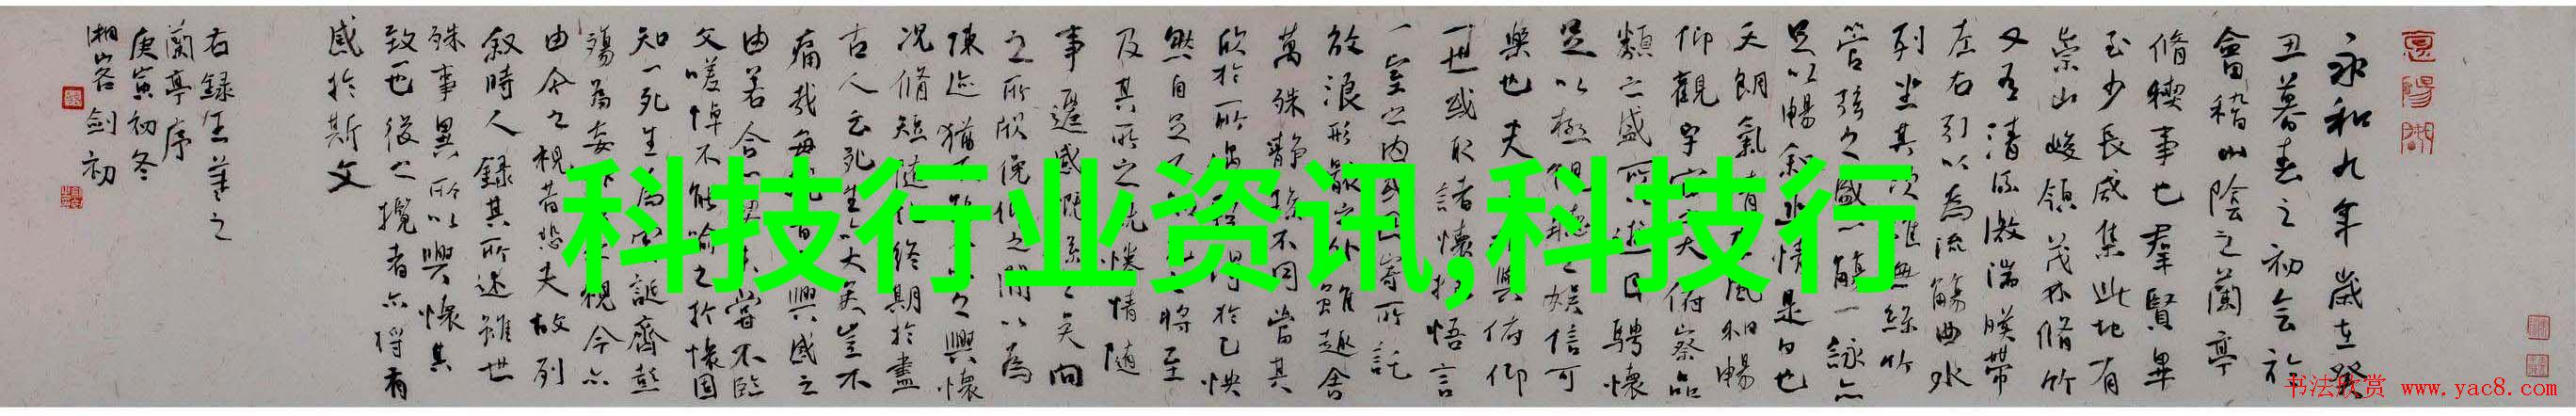 永和九年歲在癸
丑暮春之初会於
會稽山陰之蘭亭
脩稧事也羣賢畢
至少長咸集此地有
崇山峻領茂林脩竹
又有清流激湍暎帶
左右引以為流觴曲水
列坐其次雖無絲竹
管弦之盛一觴一詠亦
足以暢叙幽情是日也
天朗氣清風和暢
仰觀宇宙大俯察品
類之盛所以遊目騁懷
足以極視聽之娛信可
樂也夫與俯仰
一世或取諸懷抱悟言
一室之內或因寄所託
放浪形骸之外雖趣舍
萬殊靜躁不同當其
欣於所遇得於己怏
然自足不將至
及其所之既惓情隨
事遷感慨係之矣向
之所欣俛仰之閒以為
陳迹猶不以之興懷
況脩短隨化終期於盡
古人云死生亦大矣豈不
痛哉每覽昔興感之
由若合一契未嘗不臨
文嗟悼不能喻之於懷固
知一死生為虛誕齊彭
殤為妄之視今亦
由今之視昔悲夫故列
叙時人録其所述雖世
殊事異所以興懷其
致一也後之攬者亦將有
感於斯文
右録王羲之
蘭亭序
庚寅初冬
湘客劍初
科技行业资讯,科技行
书法欣赏 www.yac8.com